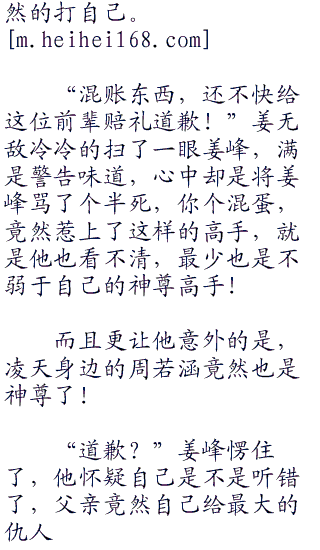 然的打自己。
[m.heihei168.com]
“混账东西，还不快给
这位前辈赔礼道歉！”姜无
敌冷冷的扫了一眼姜峰，满
是警告味道，心中却是将姜
峰骂了个半死，你个混蛋，
竟然惹上了这样的高手，就
是他也看不清，最少也是不
弱于自己的神尊高手！
而且更让他意外的是，
凌天身边的周若涵竟然也是
神尊了！
“道歉？”姜峰愣住
了，他怀疑自己是不是听错
了，父亲竟然自己给最大的
仇人